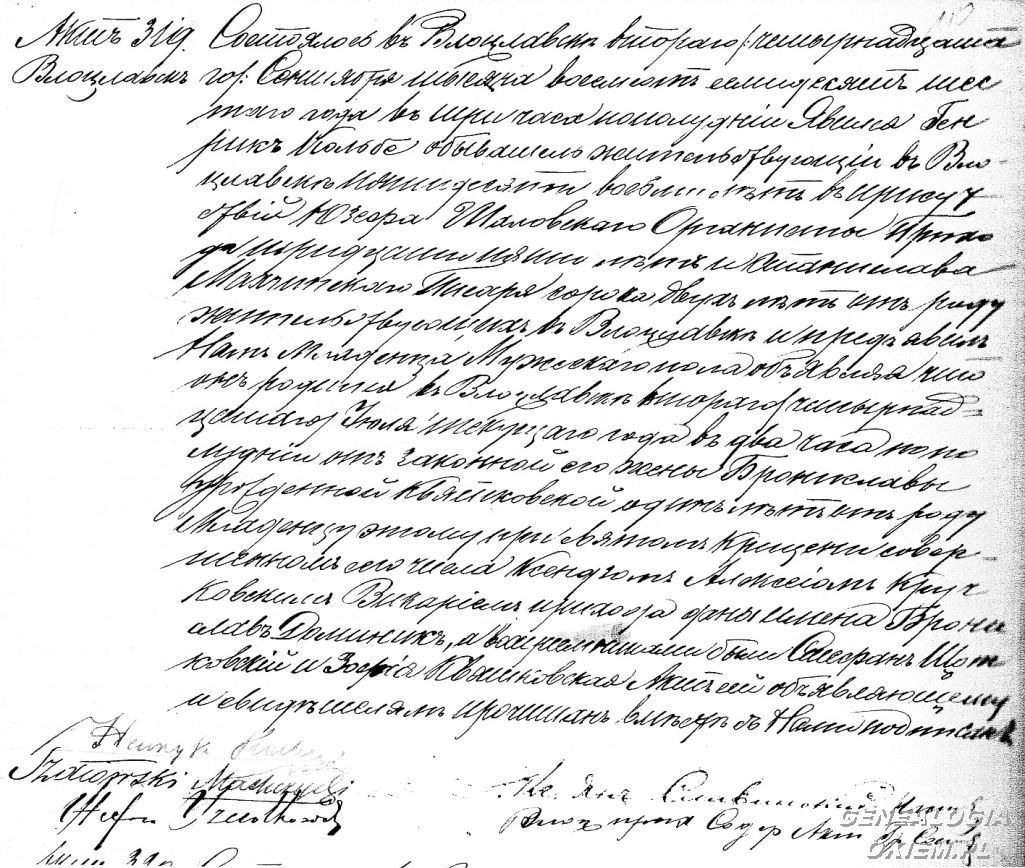 Актъ 319. Состоялось въ Влоцлавскѣ втораго /: четырнадцата
Влоцлавскъ го /: Сентября тысяча восемсотъ семидесятъ шес
таго года въ три часа пополудній Явился Ген
рикъ Кольбе обыватель жительствующій въ Вло
цлавскѣ пятидесяти восемь лѣтъ въ присут
ствій Юзефа Шатовскаго Органисты Прихо
да тридцати пяти лѣтъ и Станислава
Мачинскаго Писаря сорока двухъ лѣтъ отъ роду
жительствующихъ въ Влоцлавскѣ и предъявилъ
Намъ Младенца Мужескаго пола объявляя что
онъ родился въ Влоцлавскѣ втораго / четырнад=
цатаго / Іюля текущаго года въ два часа попо
лудній отъ законной его жены Брониславы
урожденной Квятковской лѣтъ отъ роду
Младенцу этому при святомъ крещеніи совер-
шенномъ сего числа Ксендзомъ Алексіомъ Круч
ковскимъ Викаріемъ прихода даны имена Брони
славъ Доминикъ, а воспріемниками были Стефанъ Щот
ковскій и Зофія Квятковская Актъ сей объявляющему
и свидѣтелямъ прочитанъ вмѣстѣ съ Нами подписанъ
Henryk
Szatowski
Stefan
Кс. Янъ
Влоц прих Содер Акт Гр Сост
GENEALOGIA
OKIEM.PL